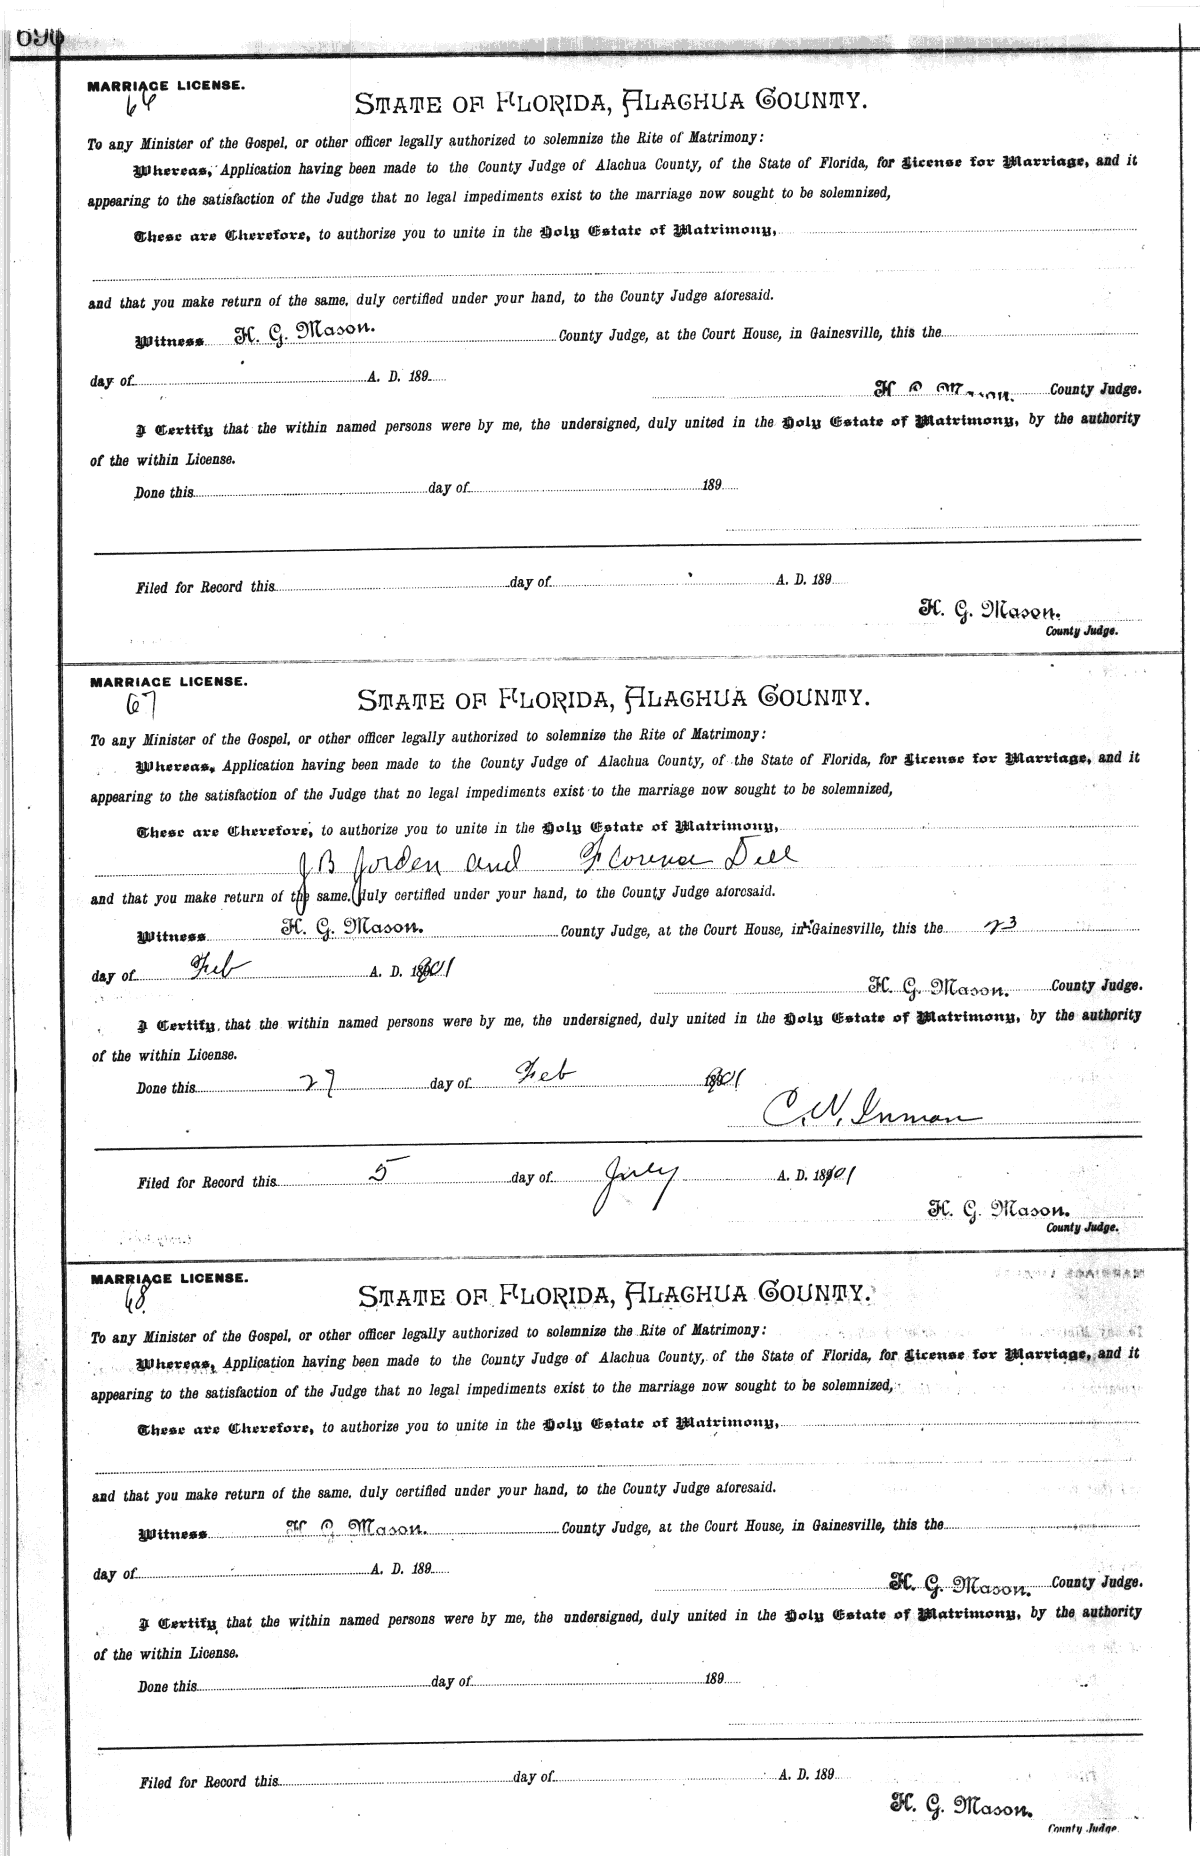 690
MARRIAGE LICENSE.
66
STATE OF FLORIDA, ALACHUA COUNTY.
To any Minister of the Gospel, or other officer legally authorized to solemnize the Rite of Matrimony:
Whereas, Application having been made to the County Judge of Alachua County, of the State of Florida, for License for Marriage, and it
appearing to the satisfaction of the Judge that no legal impediments exist to the marriage now sought to be solemnized,
These are Therefore, to authorize you to unite in the Holy Estate of Matrimony,
and that you make return of the same, duly certified under your hand, to the County Judge aforesaid.
Witness H. G. Mason. County Judge, at the Court House, in Gainesville, this the
day of A. D. 189
H. G. Mason. County Judge.
I Certify that the within named persons were by me, the undersigned, duly united in the Holy Estate of Matrimony, by the authority
of the within License.
Done this day of 189
Filed for Record this day of A. D. 189
H. G. Mason.
County Judge.
MARRIAGE LICENSE.
67
STATE OF FLORIDA, ALACHUA COUNTY.
To any Minister of the Gospel, or other officer legally authorized to solemnize the Rite of Matrimony:
Whereas, Application having been made to the County Judge of Alachua County, of the State of Florida, for License for Marriage, and it
appearing to the satisfaction of the Judge that no legal impediments exist to the marriage now sought to be solemnized,
These are Therefore, to authorize you to unite in the Holy Estate of Matrimony,
J B Jorden and Florence Dell
and that you make return of the same, duly certified under your hand, to the County Judge aforesaid.
Witness H. G. Mason. County Judge, at the Court House, in Gainesville, this the 23
day of Feb A. D. 1901
H. G. Mason. County Judge.
I Certify that the within named persons were by me, the undersigned, duly united in the Holy Estate of Matrimony, by the authority
of the within License.
Done this 27 day of Feb 1901
C. N. Inman
Filed for Record this 5 day of July A. D. 1901
H. G. Mason.
County Judge.
MARRIAGE LICENSE.
68
STATE OF FLORIDA, ALACHUA COUNTY.
To any Minister of the Gospel, or other officer legally authorized to solemnize the Rite of Matrimony:
Whereas, Application having been made to the County Judge of Alachua County, of the State of Florida, for License for Marriage, and it
appearing to the satisfaction of the Judge that no legal impediments exist to the marriage now sought to be solemnized,
These are Therefore, to authorize you to unite in the Holy Estate of Matrimony,
and that you make return of the same, duly certified under your hand, to the County Judge aforesaid.
Witness H. G. Mason. County Judge, at the Court House, in Gainesville, this the
day of A. D. 189
H. G. Mason. County Judge.
I Certify that the within named persons were by me, the undersigned, duly united in the Holy Estate of Matrimony, by the authority
of the within License.
Done this day of 189
Filed for Record this day of A. D. 189
H. G. Mason.
County Judge.